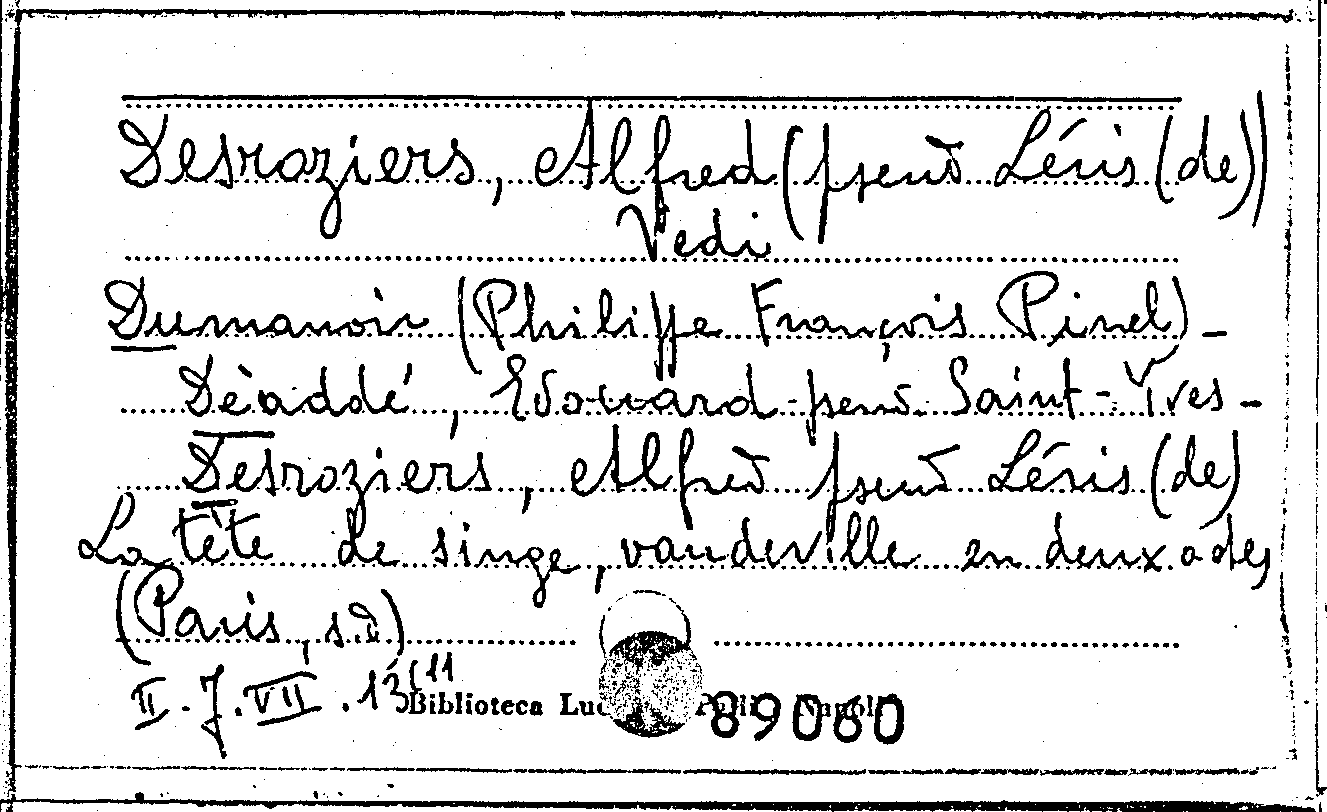 Desroziers, Alfred (pseud Léris (de))
Vedi
Dumanoir (Philippe François Pinel) -
Dèaddé, Edouard pseud. Saint-Yves -
Desroziers, Alfred pseud Léris (de)
La tête de singe, vaudeville en deux actes
(Paris, s.d)
II. J. VII. 13(11
Biblioteca
89060